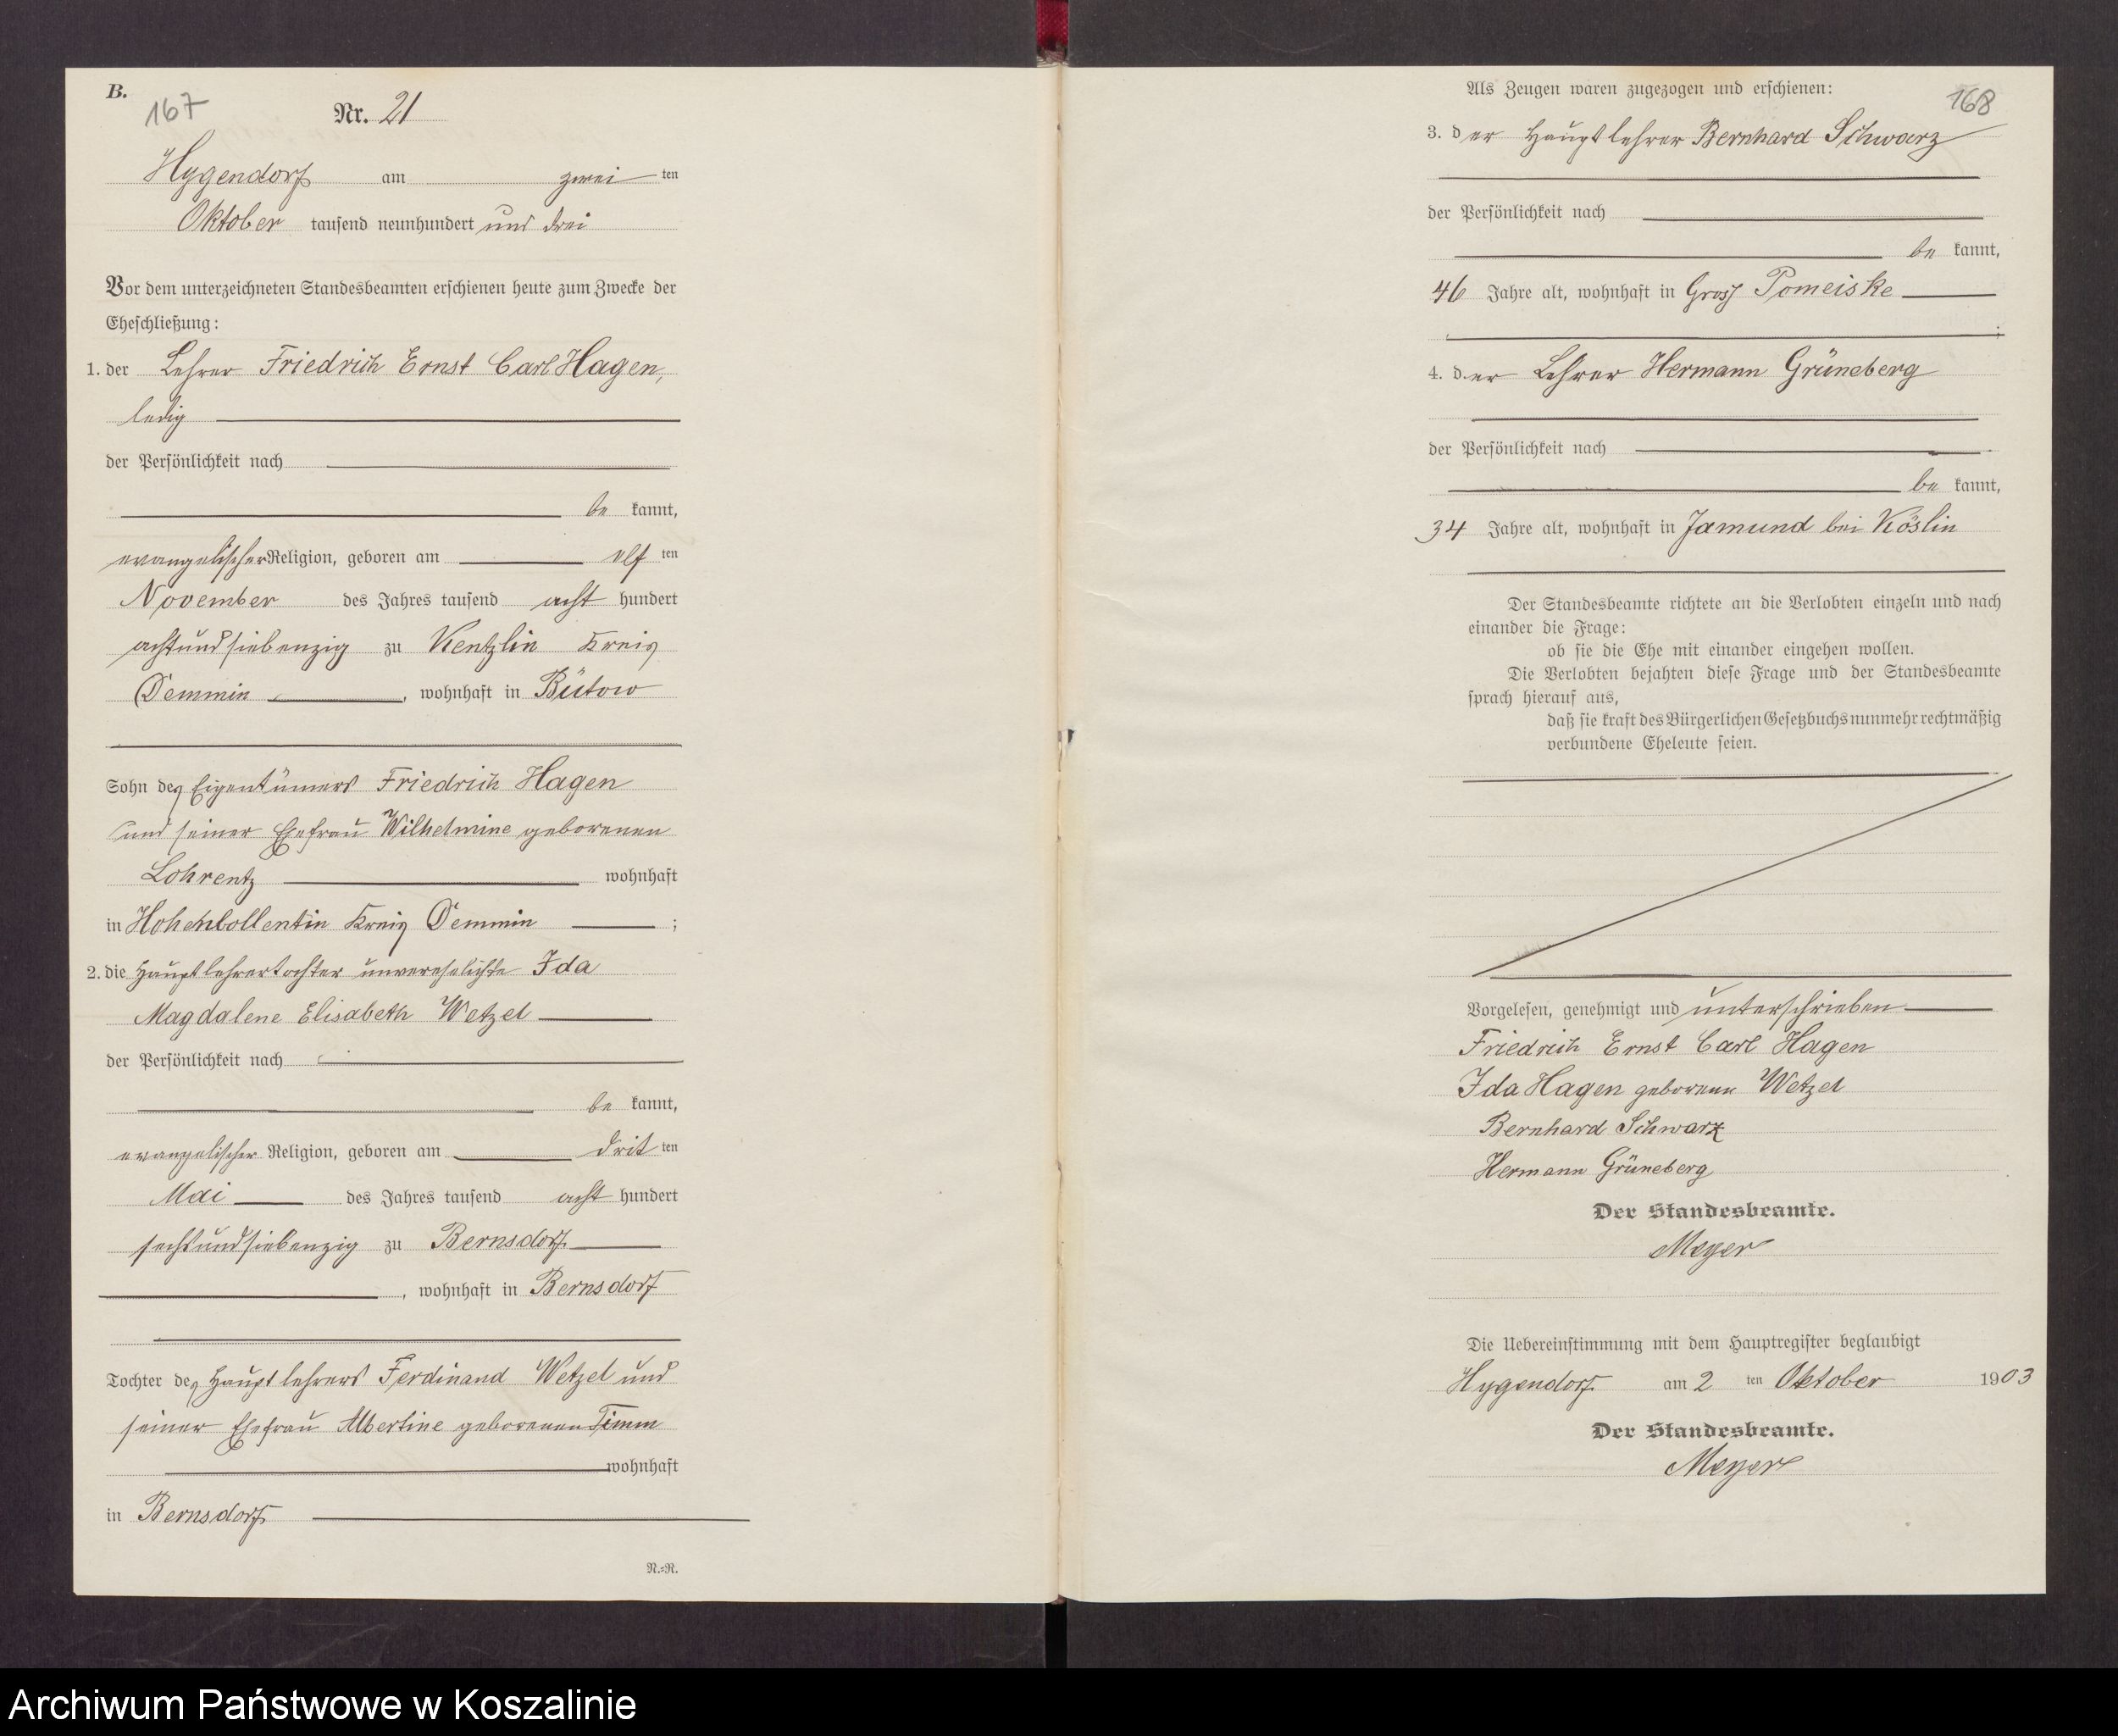 B.
167
Nr. 21
Hygendorf am zwei ten
Oktober tausend neunhundert und drei
Vor dem unterzeichneten Standesbeamten erschienen heute zum Zwecke der
Eheschließung:
1. der Lehrer Friedrich Ernst Carl Hagen,
ledig
der Persönlichkeit nach
be kannt,
evangelischer Religion, geboren am elf ten
November des Jahres tausend acht hundert
achtundsiebenzig zu Kentzlin Kreis
Demmin, wohnhaft in Bütow
Sohn des Eigentümers Friedrich Hagen
und seiner Ehefrau Wilhelmine geborenen
Lohrentz wohnhaft
in Hohenbollentin Kreis Demmin ;
2. die Hauptlehrertochter unverehelichte Ida
Magdalene Elisabeth Wetzel
der Persönlichkeit nach
be kannt,
evangelischer Religion, geboren am drit ten
Mai des Jahres tausend acht hundert
sechsundsiebenzig zu Bernsdorf
, wohnhaft in Bernsdorf
Tochter des Hauptlehrers Ferdinand Wetzel und
seiner Ehefrau Albertine geborenen Timm
wohnhaft
in Bernsdorf
N.=R.
Als Zeugen waren zugezogen und erschienen:
168
3. der Hauptlehrer Bernhard Schwarz
der Persönlichkeit nach
be kannt,
46 Jahre alt, wohnhaft in Gross Pomeiske
;
4. der Lehrer Hermann Grüneberg
der Persönlichkeit nach
be kannt,
34 Jahre alt, wohnhaft in Jamund bei Köslin
Der Standesbeamte richtete an die Verlobten einzeln und nach
einander die Frage:
ob sie die Ehe mit einander eingehen wollen.
Die Verlobten bejahten diese Frage und der Standesbeamte
sprach hierauf aus,
daß sie kraft des Bürgerlichen Gesetzbuchs nunmehr rechtmäßig
verbundene Eheleute seien.
Vorgelesen, genehmigt und unterschrieben
Friedrich Ernst Carl Hagen
Ida Hagen geborene Wetzel
Bernhard Schwarz
Hermann Grüneberg
Der Standesbeamte.
Meyer
Die Uebereinstimmung mit dem Hauptregister beglaubigt
Hygendorf am 2 ten Oktober 1903
Der Standesbeamte.
Meyer
Archiwum Państwowe w Koszalinie